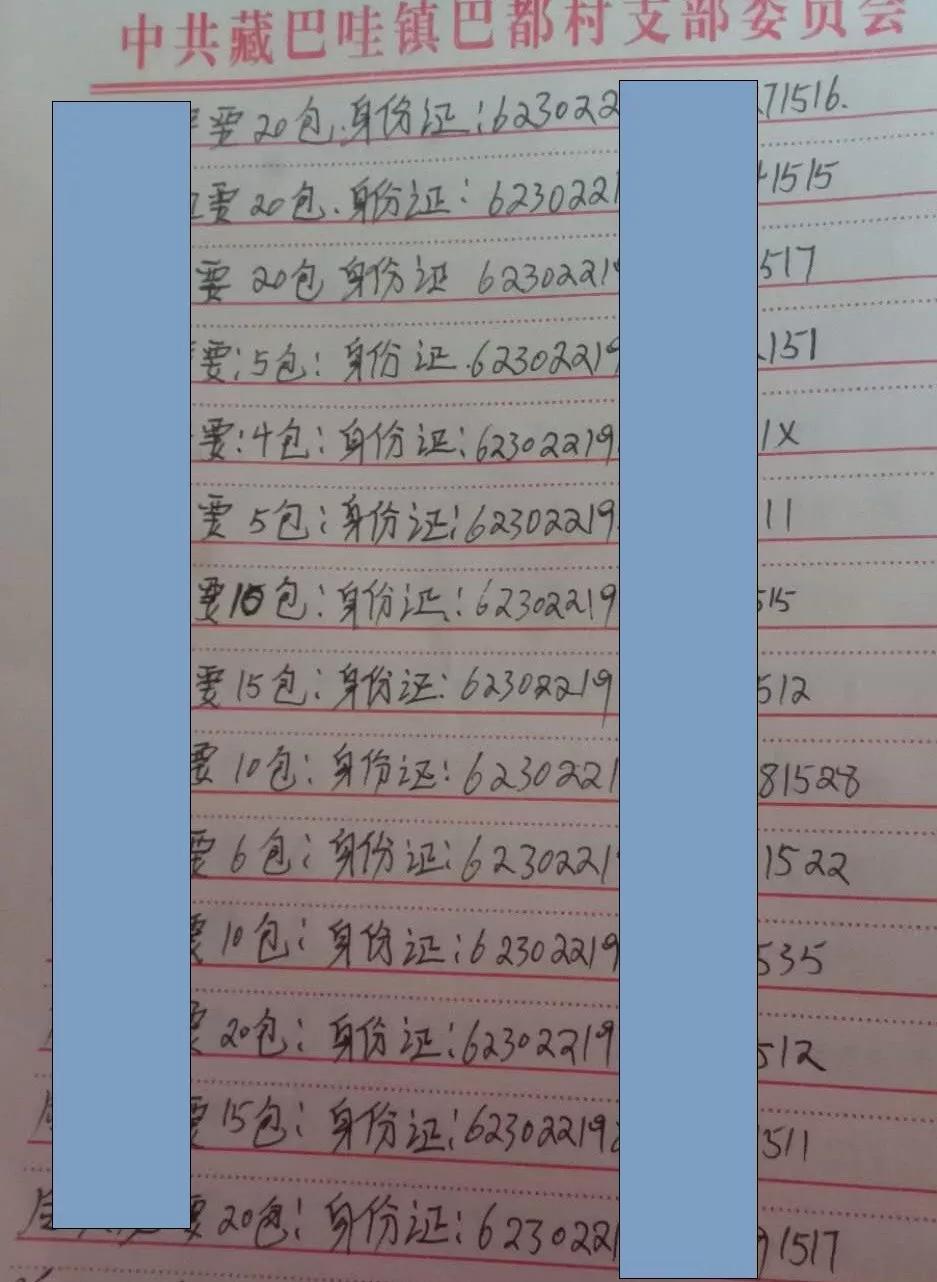 中共藏巴哇镇巴都村支部委员会
要20包.身份证:623022 71516.
要20包.身份证:6230221 1515
要 20包 身份证 62302219 517
要:5包:身份证.62302219 151
要:4包:身份证:62302219 1X
要 5包:身份证:62302219 11
要15包:身份证:62302219 515
要15包:身份证:62302219 512
要 10包:身份证:6230221 81528
要 6包:身份证:6230221 1522
要 10包:身份证:62302219 535
要 20包:身份证:62302219 512
要15包:身份证:62302219 1511
要20包:身份证:6230221 1517